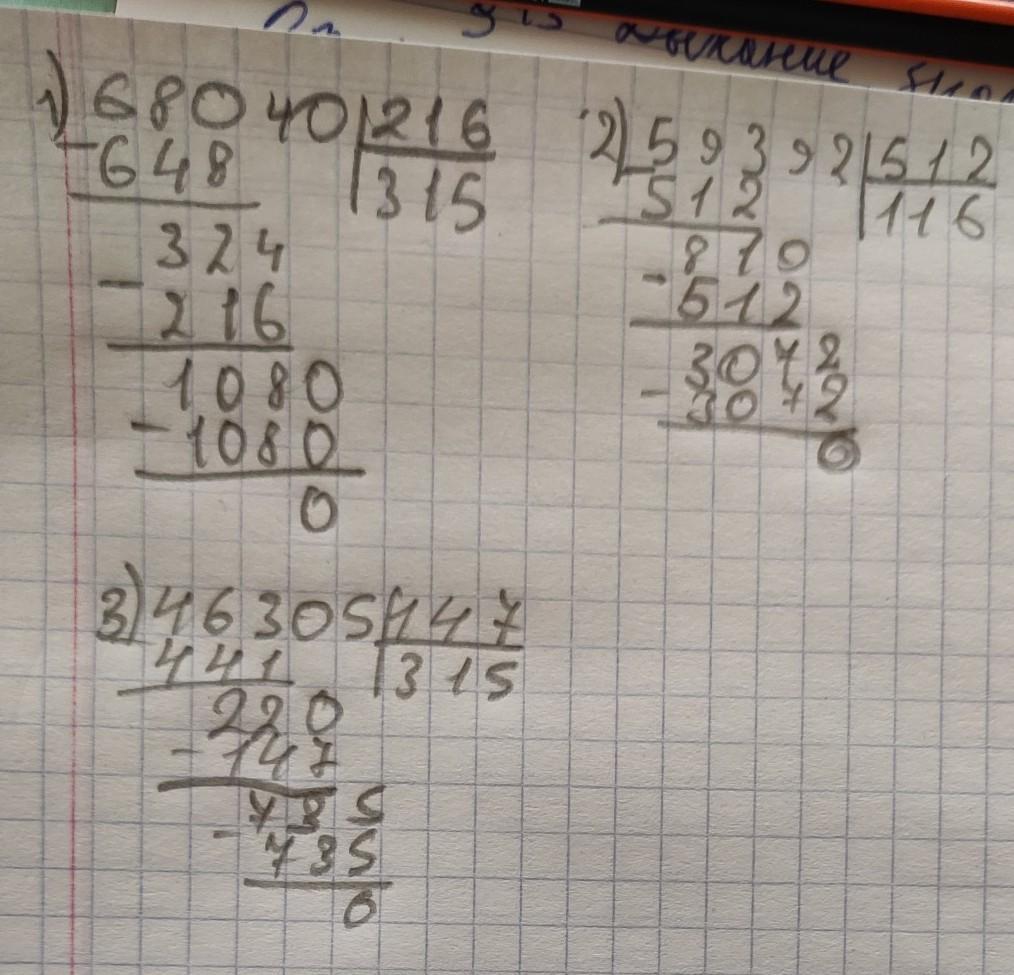 дыхание
1) 68040 | 216
- 648 | 315
324
- 216
1080
- 1080
0
2) 59392 | 512
- 512 | 116
- 512
3072
- 3072
0
3) 46305 | 147
- 441 | 315
220
- 147
735
- 735
0